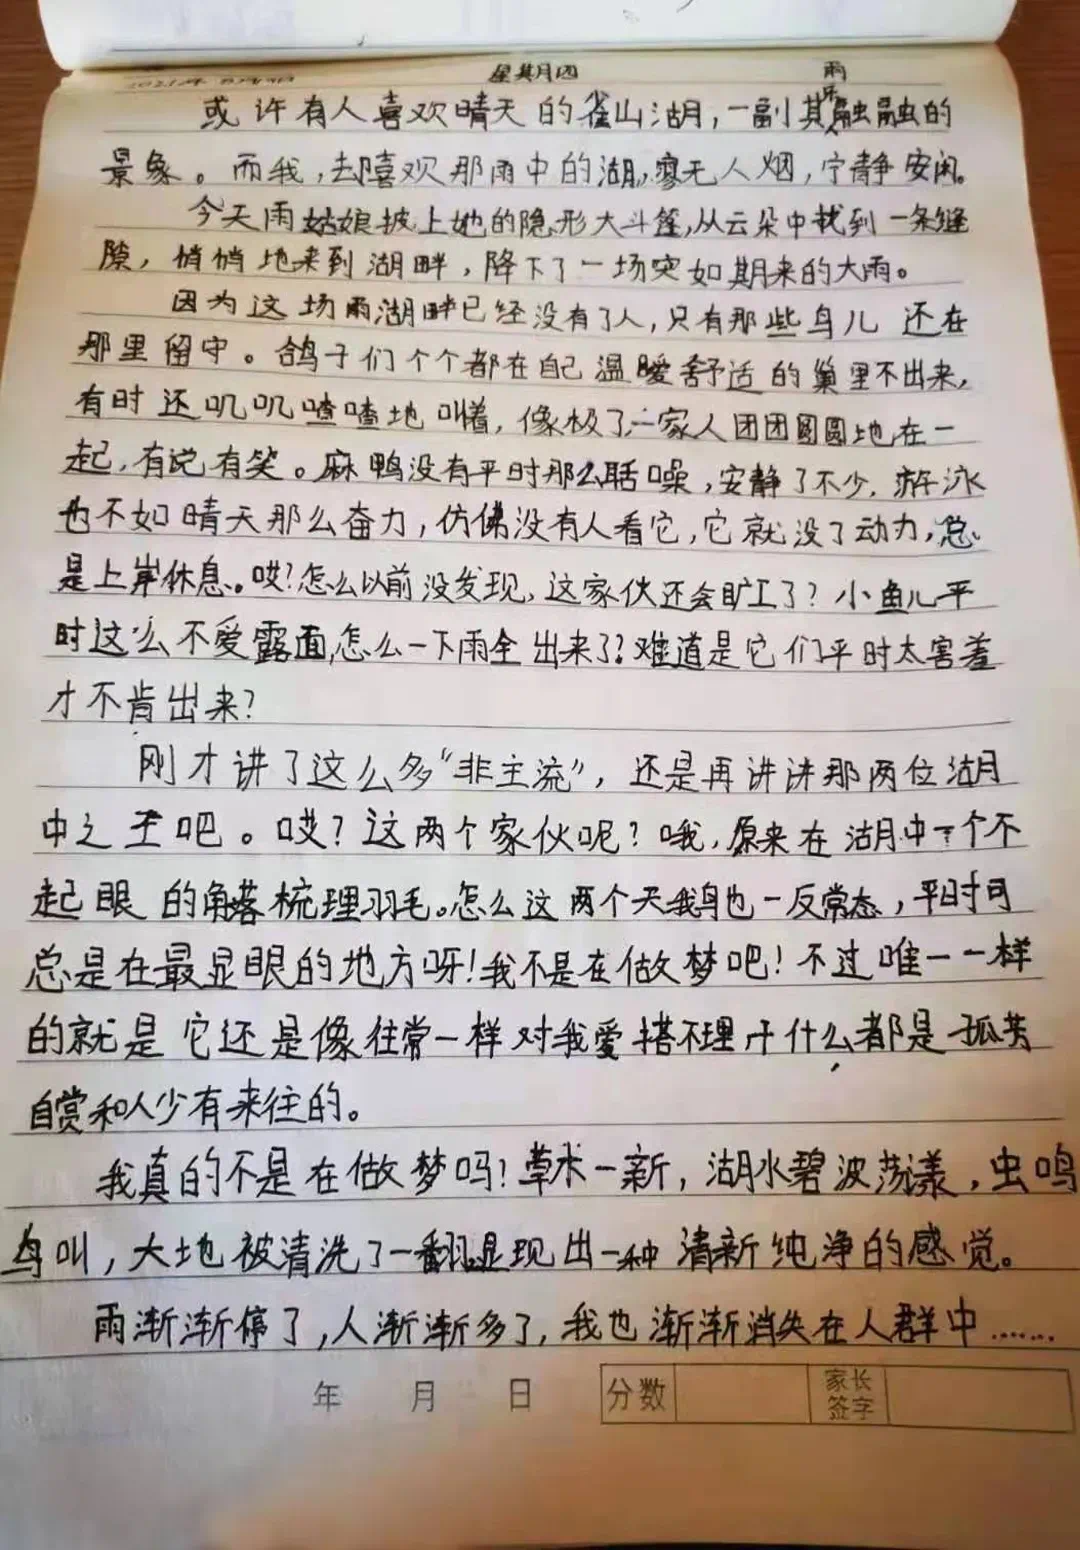 星期四 雨
或许有人喜欢晴天的雀山湖，一副其乐融融的
景象。而我，去嘻欢那雨中的湖，寥无人烟，宁静安闲。
今天雨姑娘披上她的隐形大斗篷，从云朵中找到一条缝
隙，悄悄地来到湖畔，降下了一场突如期来的大雨。
因为这场雨湖畔已经没有了人，只有那些鸟儿还在
那里留守。鸽子们个个都在自己温暖舒适的巢里不出来，
有时还叽叽喳喳地叫着，像极了一家人团团圆圆地在一
起，有说有笑。麻鸭没有平时那么聒噪，安静了不少，游泳
也不如晴天那么奋力，仿佛没有人看它，它就没了动力，总
是上岸休息。哎？怎么以前没发现，这家伙还会旷工了？小鱼儿平
时这么不爱露面，怎么一下雨全出来了？难道是它们平时太害羞
才不肯出来？
刚才讲了这么多“非主流”，还是再讲讲那两位湖
中之王吧。哎？这两个家伙呢？哦，原来在湖中一个不
起眼的角落梳理羽毛。怎么这两个天鹅也一反常态，平时可
总是在最显眼的地方呀！我不是在做梦吧！不过唯一一样
的就是它还是像往常一样对我爱搭不理干什么都是孤芳
自赏和人少有来往的。
我真的不是在做梦吗！草木一新，湖水碧波荡漾，虫鸣
鸟叫，大地被清洗了一翻显现出一种清新纯净的感觉。
雨渐渐停了，人渐渐多了，我也渐渐消失在人群中……
年 月 日 分数 家长签字